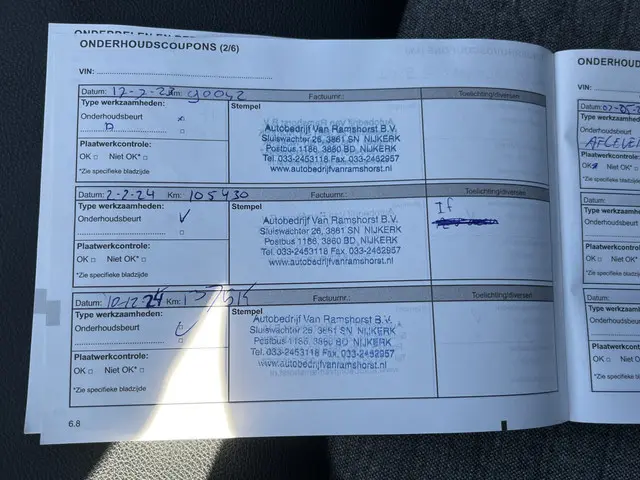 ONDERHOUDSCOUPONS (2/6)
VIN:
Datum: 12-2-23 Km: 90042 Factuurnr.: Toelichting/diversen
Type werkzaamheden:
Onderhoudsbeurt
Stempel
Autobedrijf Van Ramshorst B.V.
Sluiswachter 26, 3861 SN NIJKERK
Postbus 1186, 3860 BD NIJKERK
Tel. 033-2453118 Fax. 033-2462957
www.autobedrijfvanramshorst.nl
Plaatwerkcontrole:
OK □ Niet OK* □
*Zie specifieke bladzijde
Datum: 2-2-24 Km: 105430 Factuurnr.: Toelichting/diversen
Type werkzaamheden:
Onderhoudsbeurt
Stempel
Autobedrijf Van Ramshorst B.V.
Sluiswachter 26, 3861 SN NIJKERK
Postbus 1186, 3860 BD NIJKERK
Tel. 033-2453118 Fax. 033-2462957
www.autobedrijfvanramshorst.nl
If
Plaatwerkcontrole:
OK □ Niet OK* □
*Zie specifieke bladzijde
Datum: 10-12-24 Km: Factuurnr.: Toelichting/diversen
Type werkzaamheden:
Onderhoudsbeurt
Stempel
Autobedrijf Van Ramshorst B.V.
Sluiswachter 26, 3861 SN NIJKERK
Postbus 1186, 3860 BD NIJKERK
Tel. 033-2453118 Fax. 033-2462957
www.autobedrijfvanramshorst.nl
Plaatwerkcontrole:
OK □ Niet OK* □
*Zie specifieke bladzijde
6.8
ONDERHOUD
VIN:
Datum:
Type werkzaamhe
Onderhoudsbeurt
AFGELEVE
Plaatwerkcontrole
OK Niet OK*
*Zie specifieke bladz
Datum:
Type werkzaamh
Onderhoudsbeurt
Plaatwerkcontrol
OK □ Niet OK*
*Zie specifieke bladz
Datum:
Type werkzaamh
Onderhoudsbeurt
Plaatwerkcont
OK □ Niet O
*Zie specifieke bla